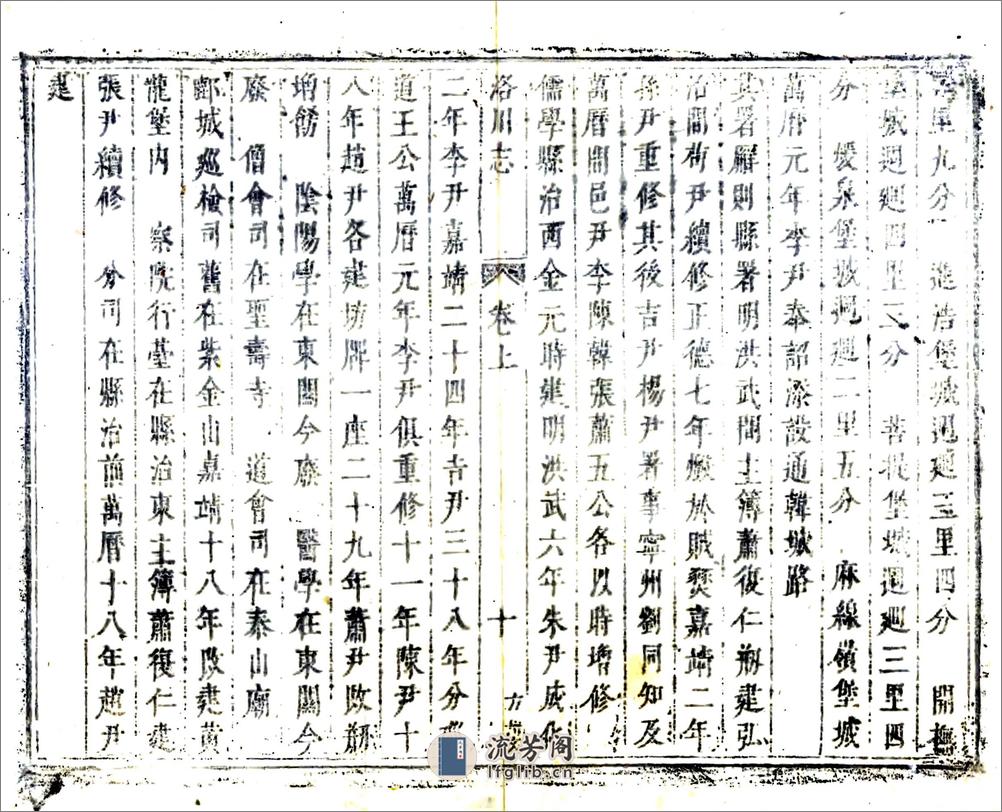 里九分 進浩堡城週迴三里四分 開撫
堡城週迴四里三分 菩提堡城週迴三里四
分 煖泉堡城週迴二里五分 麻線嶺堡城
萬曆元年李尹奉詔添設通韓城路
其署廨則縣署明洪武間主簿蕭復仁剏建弘
治間尹續修正德七年燬於賊嘉靖二年
孫尹重修其後吉尹楊尹署事寧州劉同知及
萬曆間邑尹李陳韓張蕭五公各以時增修
儒學縣治西金元時建明洪武六年朱尹成化
洛川志 卷上 十
二年李尹嘉靖二十四年吉尹三十八年分巡
道王公萬曆元年李尹俱重修十一年陳尹十
八年趙尹各建坊牌一座二十九年蕭尹改剏
增飭 陰陽學在東關今廢 醫學在東關今
廢 僧會司在聖壽寺 道會司在泰山廟
鄜城巡檢司舊在紫金山嘉靖十八年改建黃
龍堡內 察院行臺在縣治東主簿蕭復仁建
張尹續修 分司在縣治前萬曆十八年趙尹
建
流芳阁
lfglib.cn